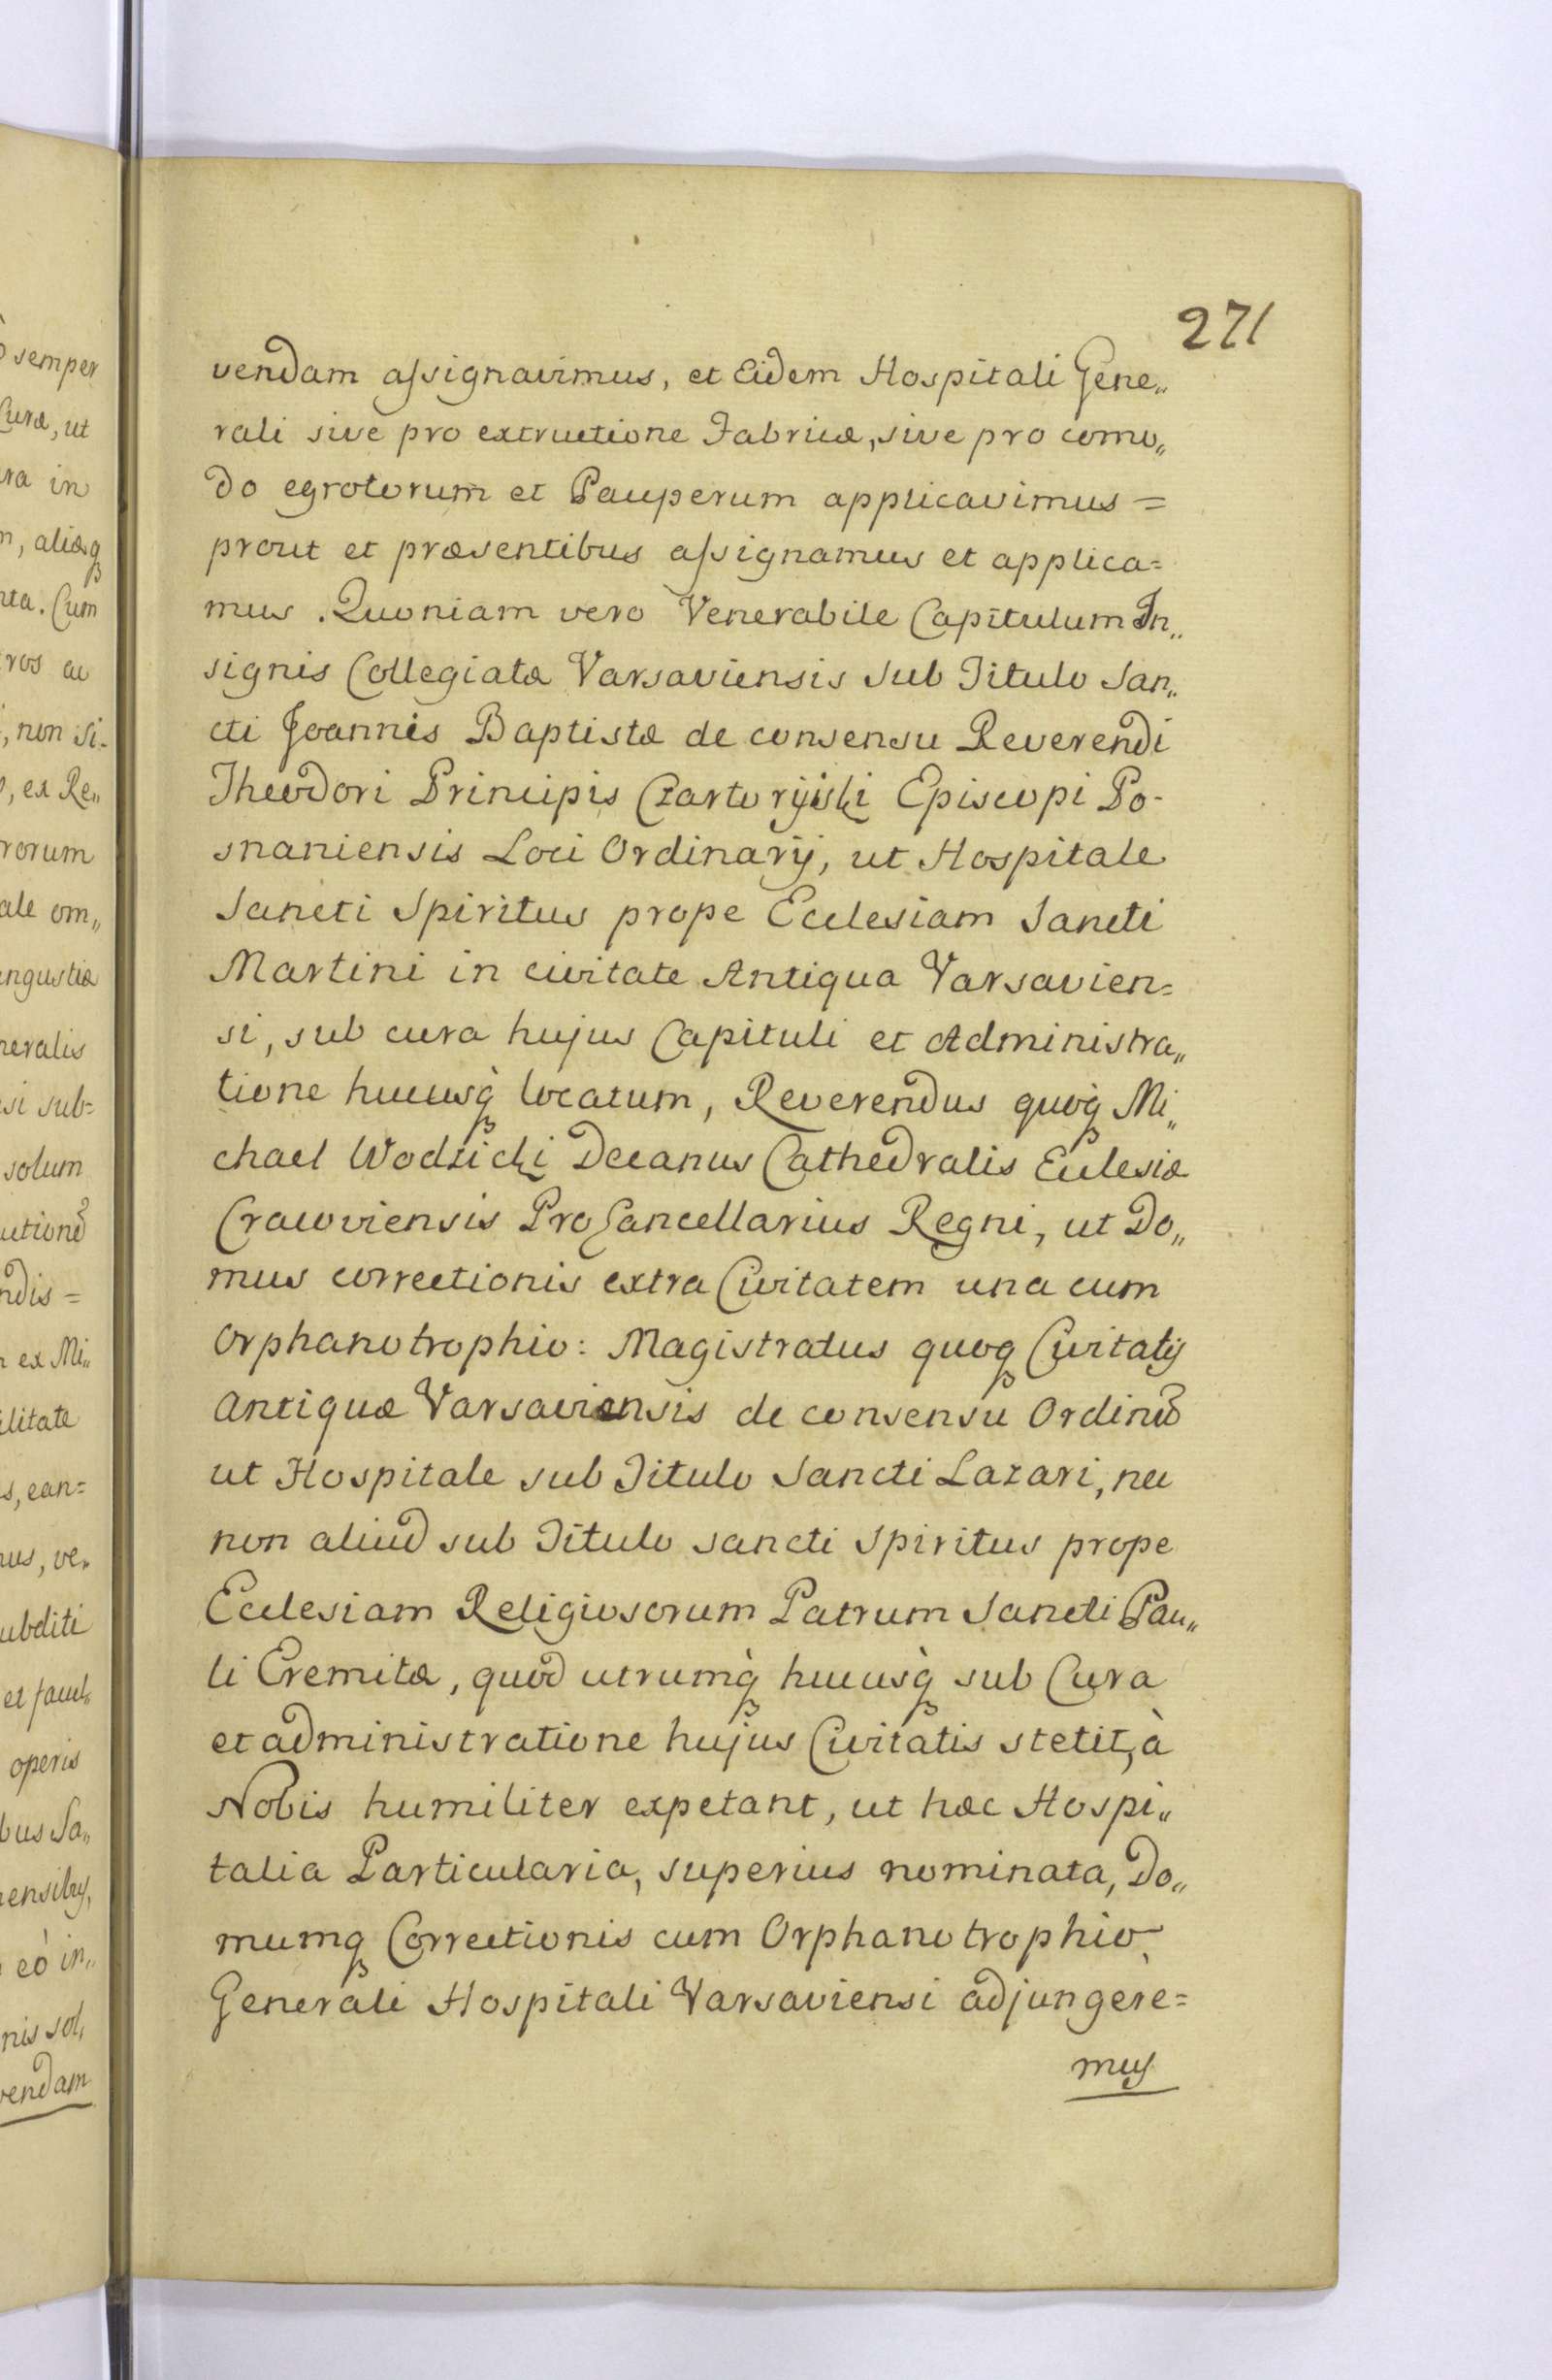 271
vendam assignavimus, et Eidem Hospitali Gene„
rali sive pro extructione Fabricæ, sive pro como„
do egrotorum et Pauperum applicavimus =
prout et præsentibus assignamus et applica=
mus. Quoniam vero Venerabile Capitulum In„
signis Collegiatæ Varsaviensis sub Titulo San„
cti Joannis Baptistæ de consensu Reverendi
Theodori Principis Czartoryiski Episcopi Po-
snaniensis Loci Ordinarij, ut Hospitale
Sancti Spiritus prope Ecclesiam Sancti
Martini in civitate Antiqua Varsavien=
si, sub cura hujus Capituli et Administra„
tione hucusq̀ locatum, Reverendus quoq̀ Mi„
chael Wodzicki Decanus Cathedralis Ecclesiæ
Cracoviensis ProCancellarius Regni, ut Do„
mus correctionis extra Civitatem una cum
Orphanotrophio: Magistratus quoq Civitatis
Antiquæ Varsaviensis de consensu Ordinũ
ut Hospitale sub Titulo Sancti Lazari, nec
non aliud sub Titulo sancti Spiritus prope
Ecclesiam Religiosorum Patrum Sancti Pau„
li Eremitæ, quod utrumq̀ hucusq̀ sub Cura
et administratione hujus Civitatis stetit, à
Nobis humiliter expetant, ut hæc Hospi„
talia Particularia, superius nominata, Do„
mumq Correctionis cum Orphanotrophio
Generali Hospitali Varsaviensi adjungère=
mus
semper
Curæ, ut
ra in
, aliasq
nta. Cum
ros ac
, non si-
, ex Re„
rorum
ale om„
angustiæ
neralis
si sub=
solum
utionũ
ndis =
ex Mi„
ilitate
s, ean=
us, ve„
ubditi
et facul„
operis
bus Sa„
ensibus,
eò in„
nis sol„
vendam